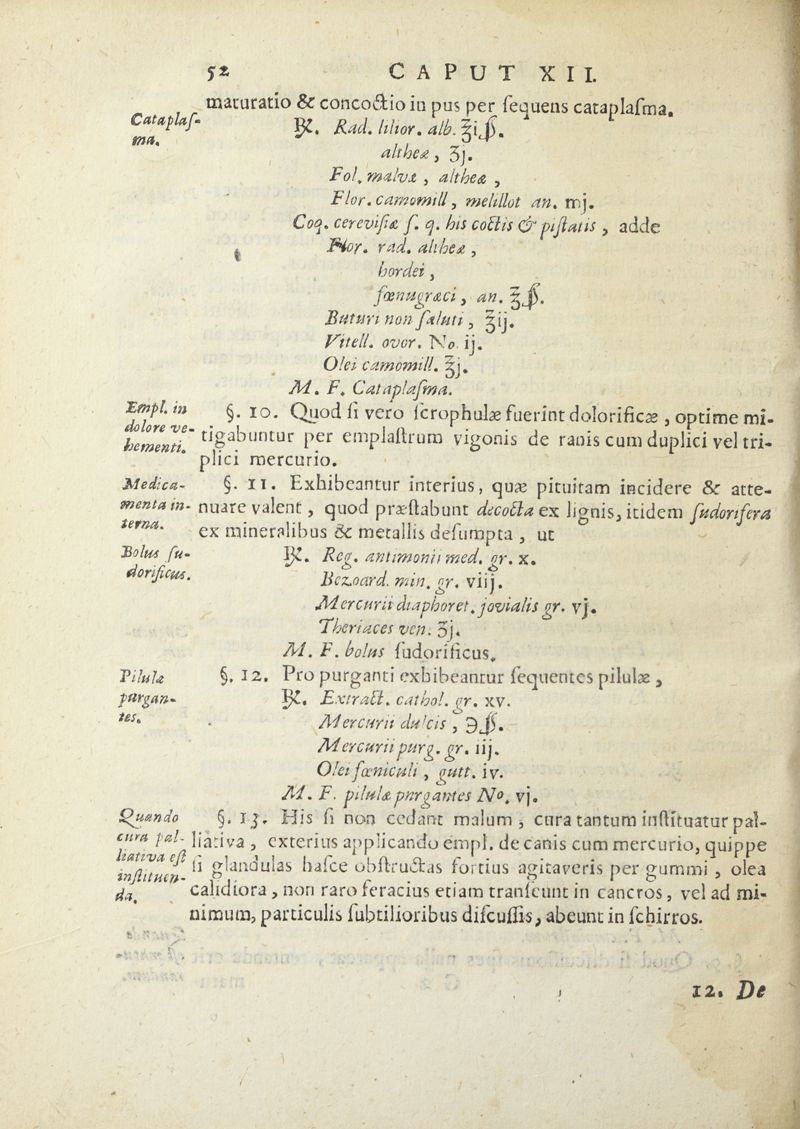 52 CAPUT XII.
maturatio & concoctio in pus per ſequens cataplaſma.
Cataplaſ-
ma.
℞. Rad. lilior. alb. ℥iß.
altheæ, ʒj.
Fol. malvæ, altheæ,
Flor. camomill, melillot an. mj.
Coq. cereviſiæ ſ. q. his coctis & piſtatis, adde
rad. altheæ,
hordei,
fœnugræci, an. ℥ß.
Buturi non ſaluti, ℥ij.
Vitell. ovor. No. ij.
Olei camomill. ℥j.
M. F. Cataplaſma.
Empl. in
dolore ve-
hementi.
§. 10. Quod ſi vero ſcrophulæ fuerint dolorificæ, optime mi-
tigabuntur per emplaſtrum vigonis de ranis cum duplici vel tri-
plici mercurio.
Medica-
menta in-
terna.
§. 11. Exhibeantur interius, quæ pituitam incidere & atte-
nuare valent, quod præſtabunt decocta ex lignis, itidem ſudorifera
ex mineralibus & metallis deſumpta, ut
Bolus ſu-
dorificus.
℞. Reg. antimonii med. gr. x.
Bezoard. min. gr. viij.
Mercurii diaphoret. jovialis gr. vj.
Theriaces ven. ʒj.
M. F. bolus ſudorificus.
Pilulæ
purgan-
tes.
§. 12. Pro purganti exhibeantur ſequentes pilulæ,
℞. Extract. cathol. gr. xv.
Mercurii dulcis, ℈ß.
Mercurii purg. gr. iij.
Olei fœniculi, gutt. iv.
M. F. pilulæ purgantes No. vj.
Quando
cura pal-
liativa eſt
inſtituen-
da.
§. 13. His ſi non cedant malum, cura tantum inſtituatur pal-
liativa, exterius applicando empl. de canis cum mercurio, quippe
ſi glandulas haſce obſtructas fortius agitaveris per gummi, olea
calidiora, non raro feracius etiam tranſeunt in cancros, vel ad mi-
nimum, particulis ſubtilioribus diſcuſſis, abeunt in ſchirros.
12. De